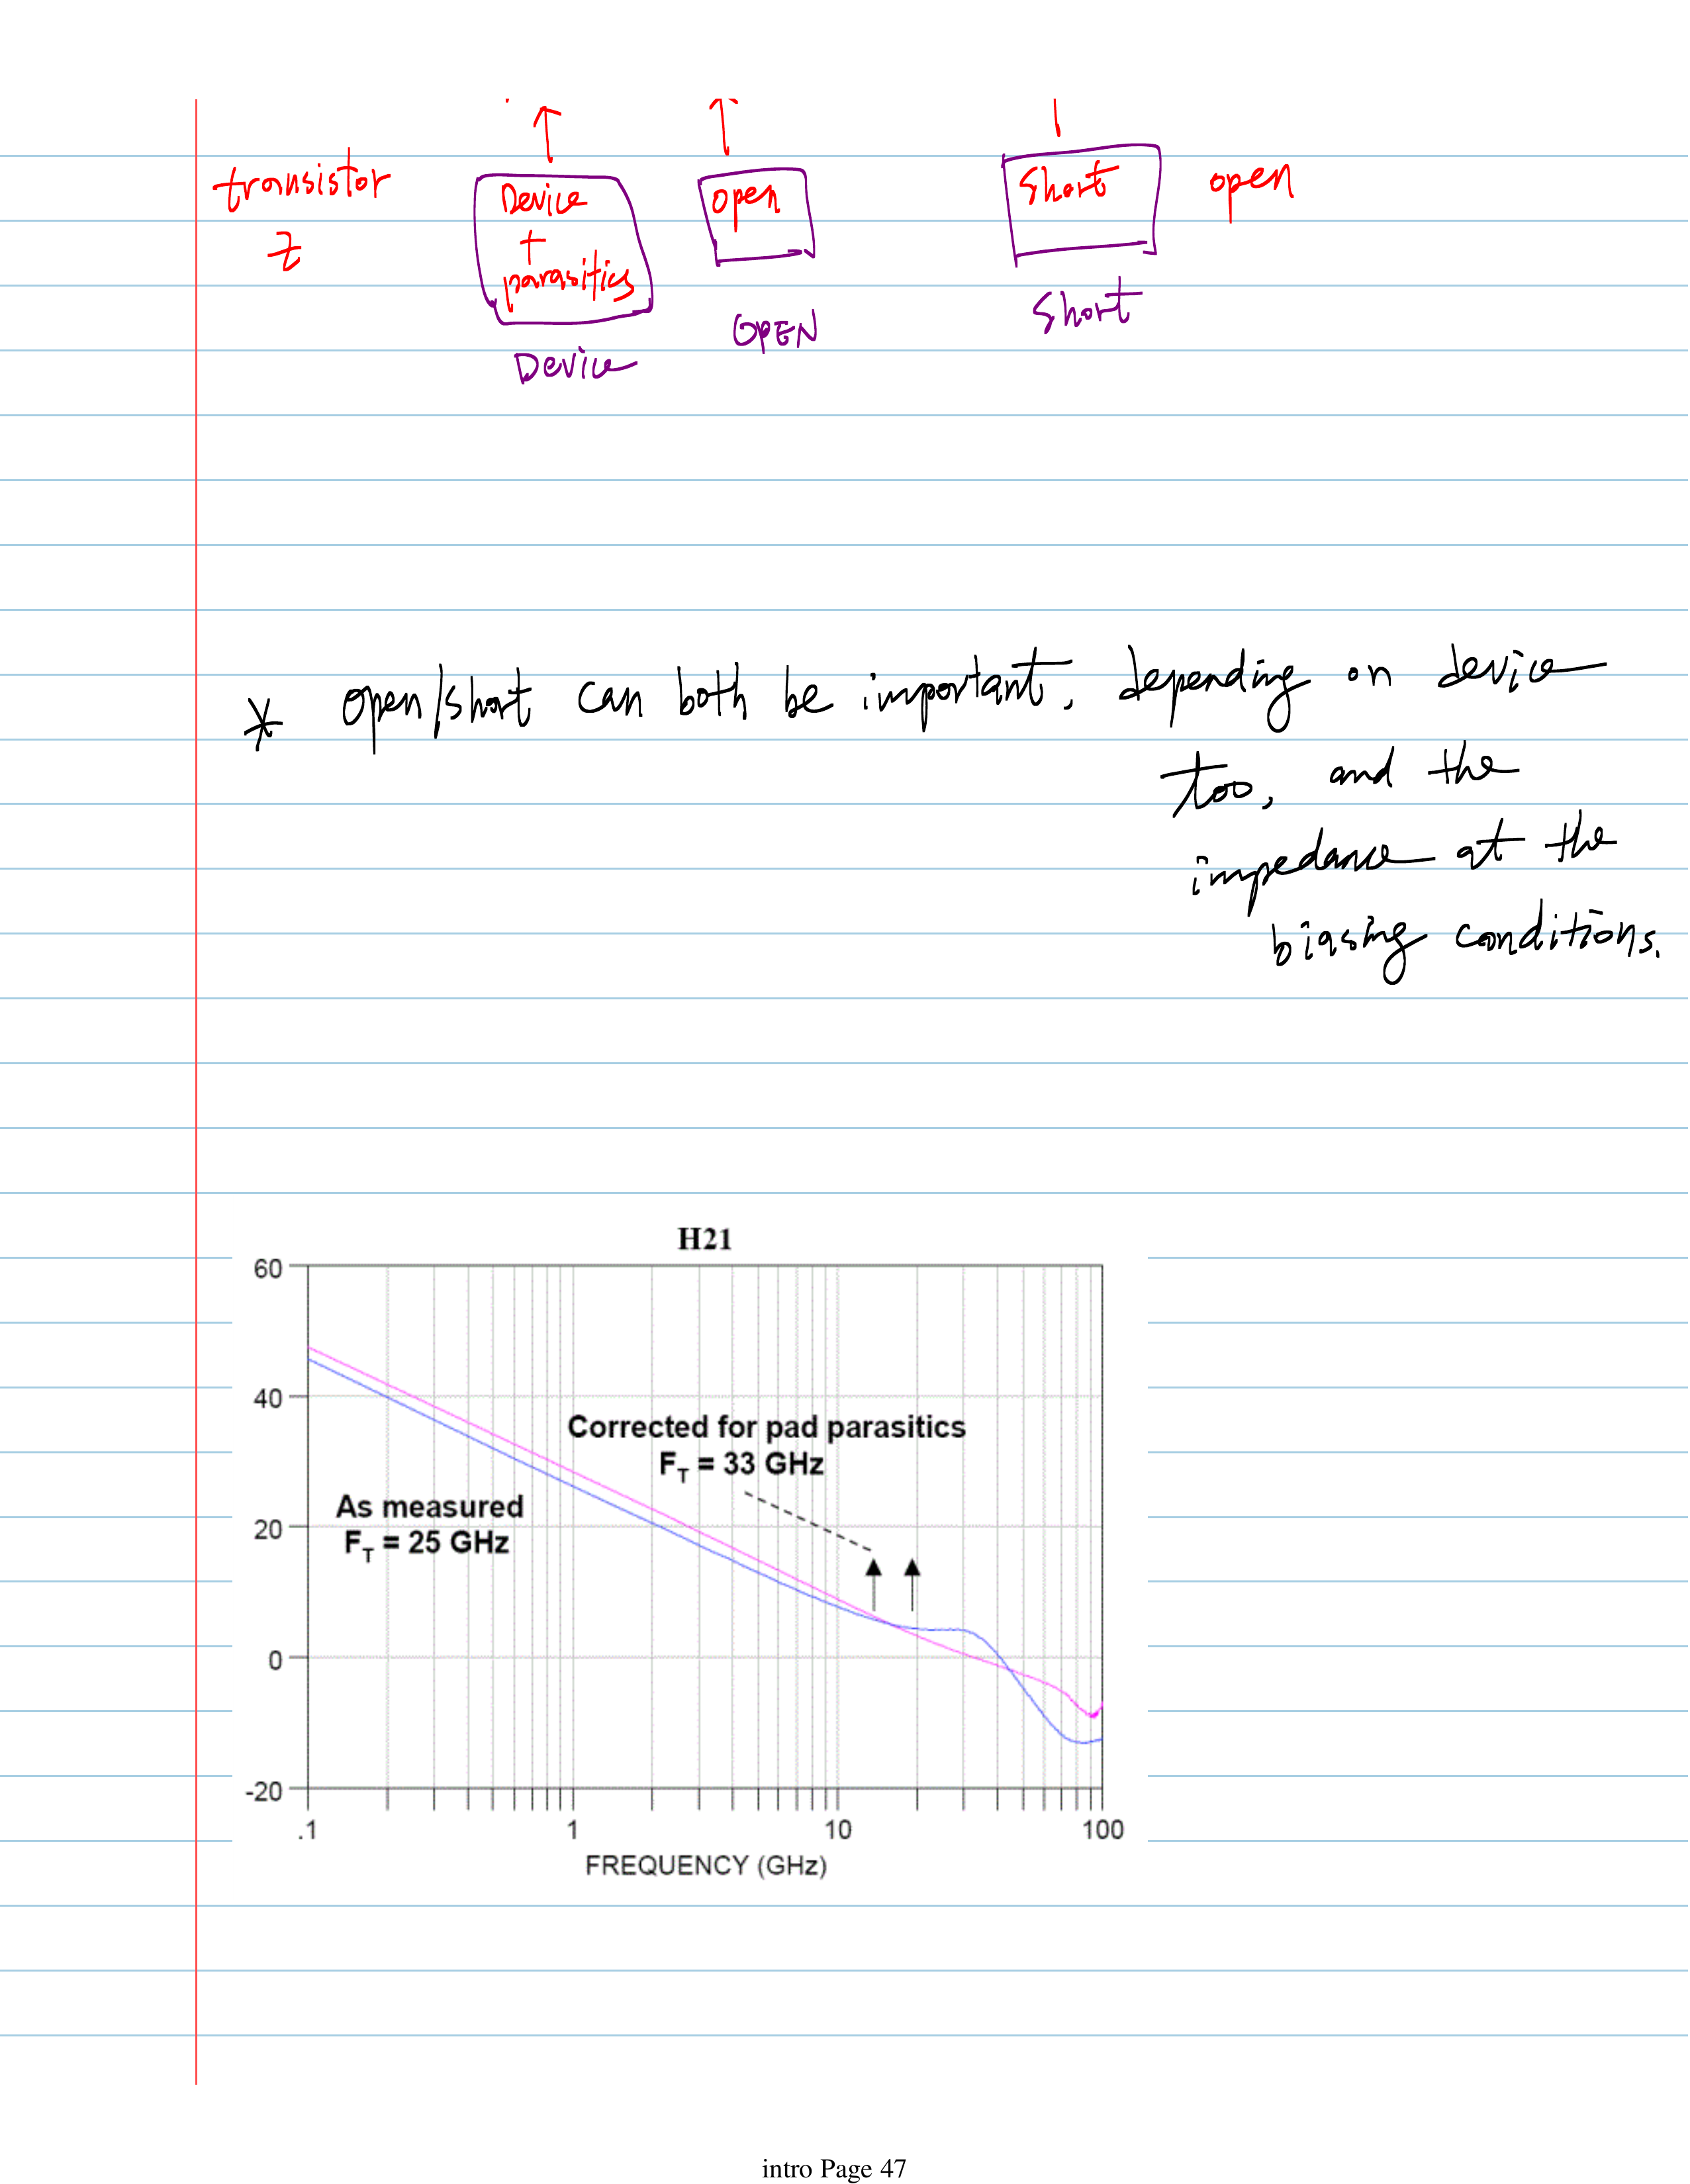 transistor
z
Device
+
parasitics
Device
open
OPEN
Short
Short
open
* open/short can both be important, depending on device
too, and the
impedance at the
biasing conditions.
H21
60
40
20
0
-20
Corrected for pad parasitics
FT = 33 GHz
As measured
FT = 25 GHz
.1 1 10 100
FREQUENCY (GHz)
intro Page 47